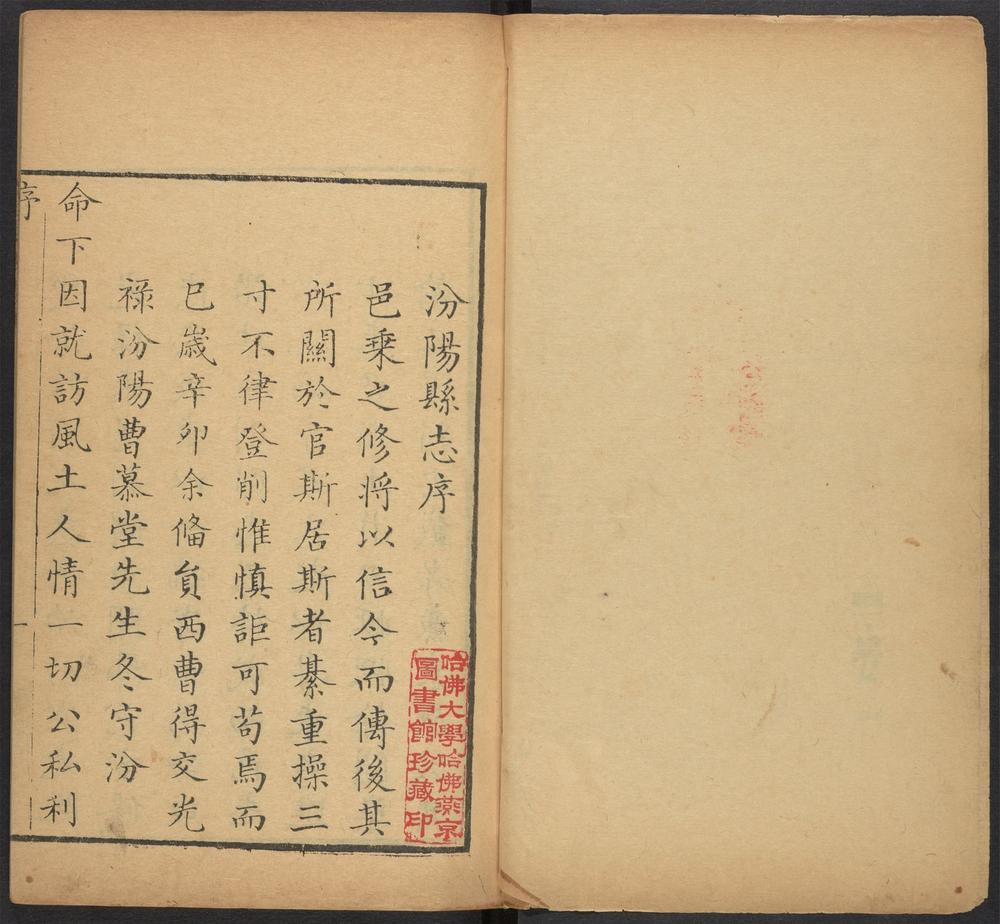 汾陽縣志序
邑乗之修將以信今而傳後其
所關於官斯居斯者綦重操三
寸不律登削惟慎詎可苟焉而
巳歲辛卯余備員西曹得交光
祿汾陽曹慕堂先生冬守汾
命下因就訪風土人情一切公私利
序
一
哈佛大學哈佛燕京
圖書館珍藏印